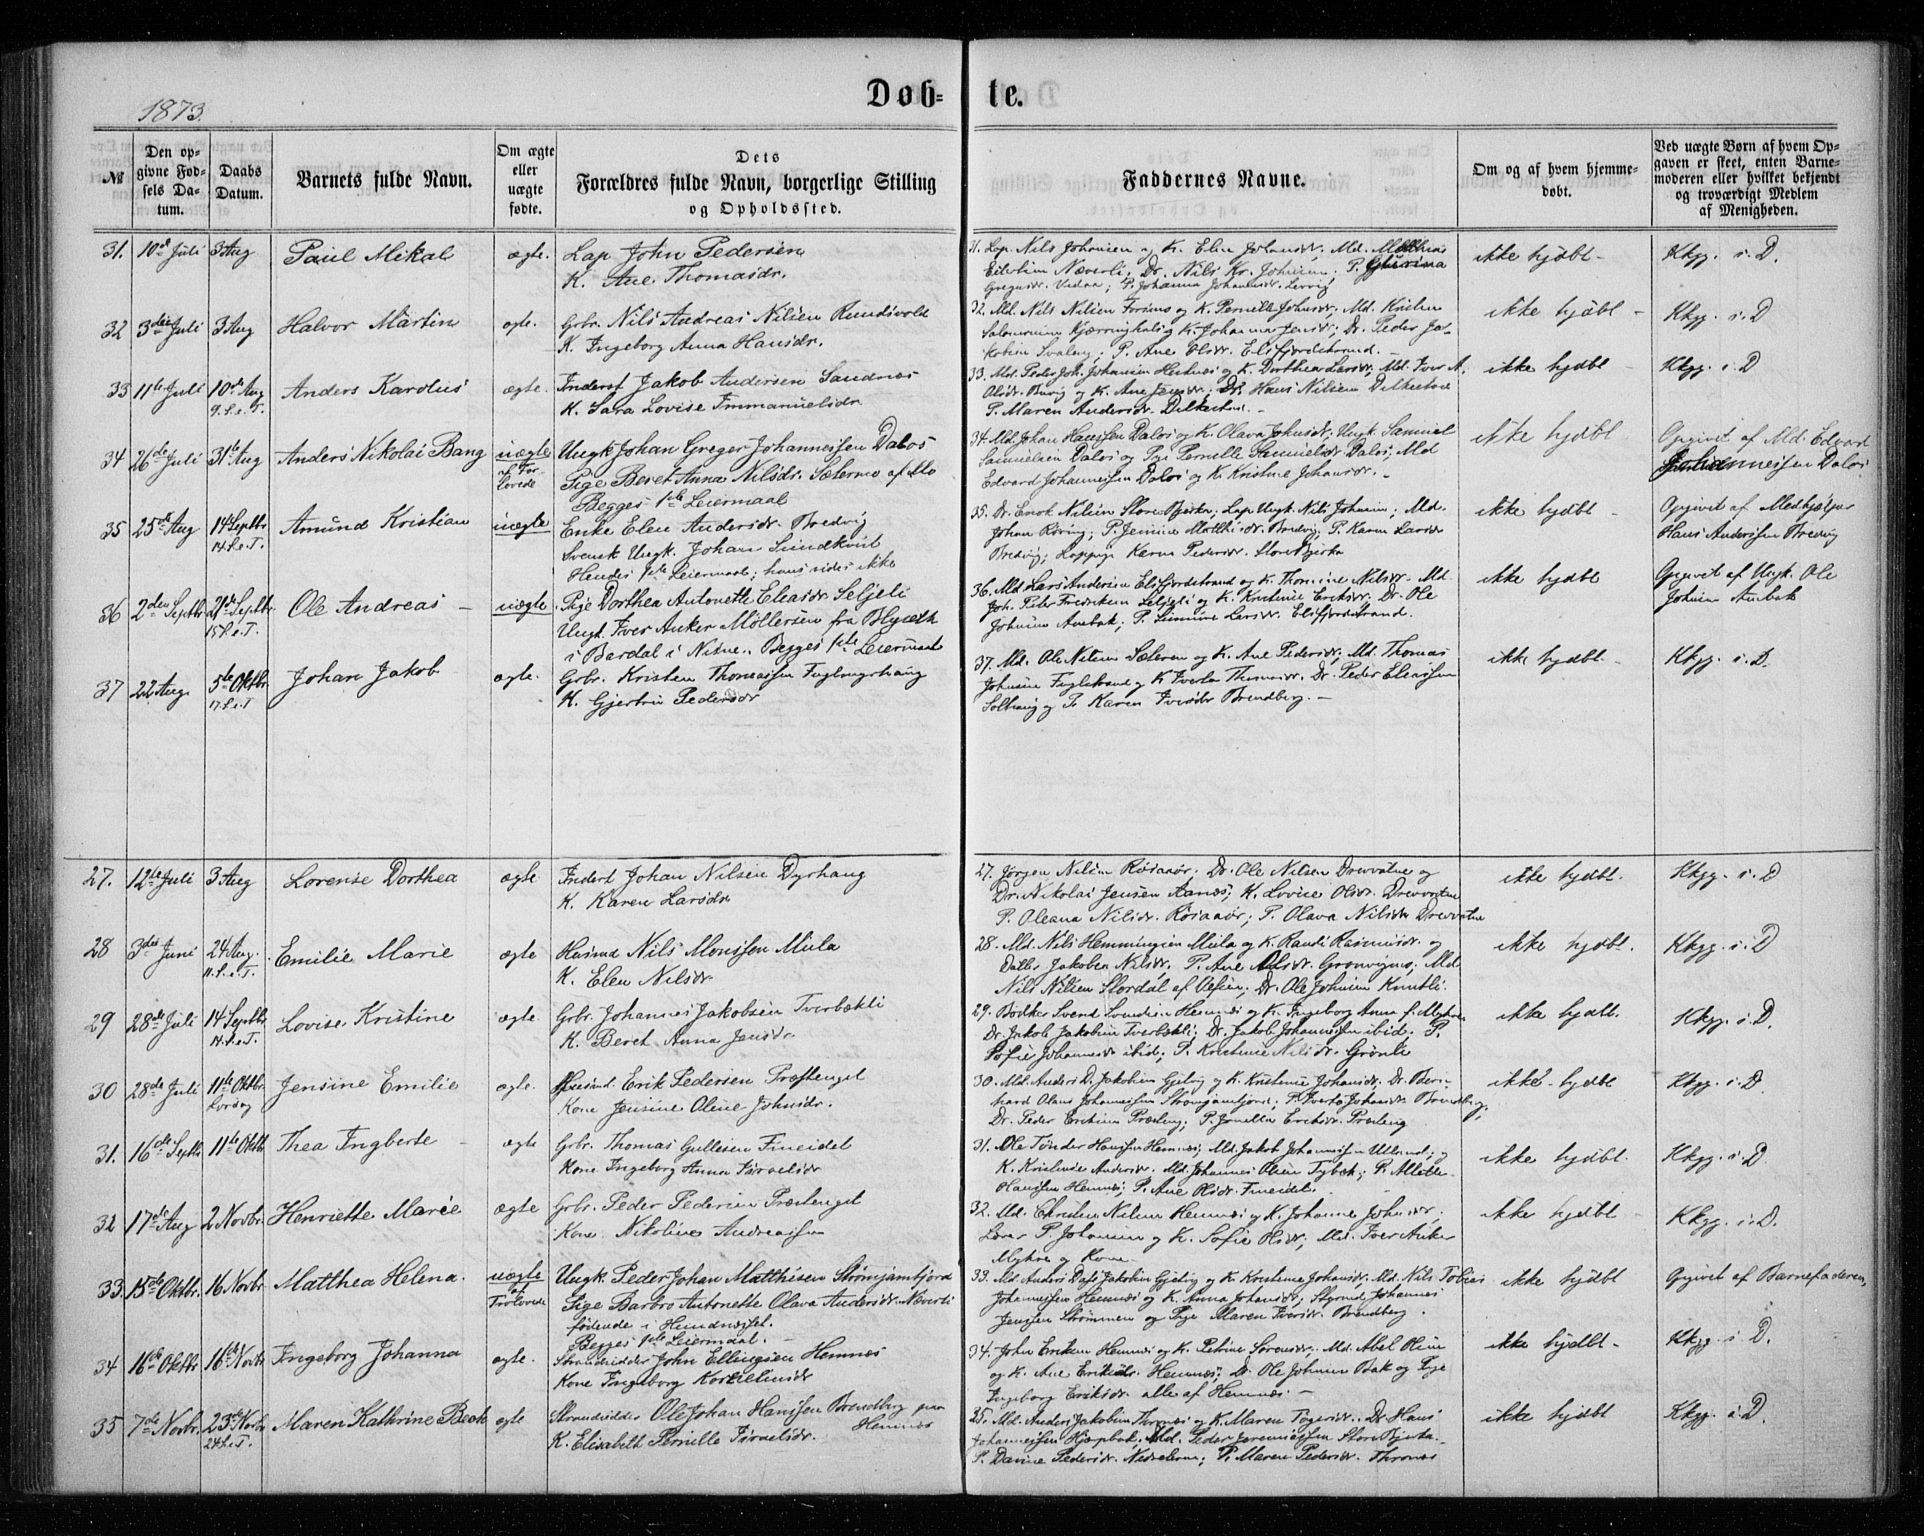 1873.
Døb-
te.
№
Den op-
givne Fød-
sels Da-
tum.
Daabs
Datum.
Barnets fulde Navn.
Om ægte
eller
uægte
fødte.
Dets
Forældres fulde Navn, borgerlige Stilling
og Opholdssted.
Faddernes Navne.
Om og af hvem hjemme-
døbt.
Ved uægte Børn af hvem Op-
gaven er skeet, enten Barne-
moderen eller hvilket bekjendt
og troværdigt Medlem
af Menigheden.
31. 10de Juli 3 Aug Paul Mikal ægte. Lap John Pedersen
K. Ane Thomasdr.
31. Lap. Nils Johansen og K. Elen Md. Matthias
Næverli, Dr. Nils Kr. Johnsen; P.
Vedaa; P. Johanna Johansdr.
ikke hjdbt - Kkgg. i. D.
32 3die Juli 3 Aug Halvor Martin ægte. Grbr. Nils Andreas Nilsen Rundvold
K. Ingeborg Anna Hansdr.
32. Md. Nils Nilsen Forsmo og K. Pernelle Johnsdr. Md. Kristen
Salomonsen og K. Johanna Jensdr; Dr. Peder Ja-
kobsen P. Ane Olsdr. Elsfjordstrand. -
ikke hjdbt - Kkgg. i. D
33 11te Juli 10de Aug Anders Karolus ægte. Inderst Jakob Andersen Sandnæs
9. S. e. T.
K. Sara Lovise Emmanuelsdr
33. Md. Peder Joh. Johansen og K. Dorthea Larsdr. Md. Iver A.
og K. Ane Jensdr; Dr. Hans Nilsen
P. Maren Andersdr.
ikke hjdbt - Kkgg. i. D
34 26de Juli 31te Aug Anders Nikolai Bang uægte Ungk Johan Greger Johannessen Dalos
af For-
lovede
Pige Beret Anna Nilsdr. af Mo
Begges 1ste Leiermaal
34. Md. Johan Hanssen Dalos og K. Olava Johnsdr; Ungk Samuel
Samuelsen Dalos og Pige Pernille Samuelsdr Dalos; Md
Edvard Johannessen Dalos og K. Kristine Johansdr. -
ikke hjdbt
Opgivet af Md. Edvard
Johannessen Dalos
35 25de Aug 14 Septbr. Amund Kristian uægte Enke Elen Andersdr. Bredvig
14. S. e. T.
Svensk Ungk. Johan Sundkvist
Hendes 1ste Leiermaal; hans vides ikke
35. Dr. Enok Nilsen Store Bjerka; Lap. Ungk. Nils Johnsen; Md.
Johan P. Jensine Matthisdr. Bredvig; P. Karen Larsdr
Bredvig; Karen Pedersdr. Store Bjerka
ikke hjdbt - Opgivet af Medhjelper
Hans Andersen Bredvig
36 2den Septbr 21de Septbr. Ole Andreas - uægte Pige Dorthea Antonette Eleasdr. Seljeli
15. S. e. T.
Ungk. Iver Anker Möllersen fra
i Bardal i Nesne. Begges 1ste Leiermaal
36. Md Lars Andersen Elsfjordstrand og K. Thomine Nilsdr. Md.
Joh. Peter Fredriksen Seljeli og K. Kristine Eriksdr. Dr. Ole
Johnsen P. Larsdr. Elsfjordstrand.
ikke hjdbt
Opgivet af Ungk. Ole
Johnsen
37 22 Aug. 5te Oktbr. Johan Jakob ægte. Grbr. Kristen Thomassen
17. S. e. T
K. Gjertrü Pedersdr
37. Md. Ole Nilsen Sæteren og K. Ane Pedersdr, Md. Thomas
Johnsen Fuglstrand og K. Iverta Thomasdr. Dr. Peder Eleassen
og P. Karen Iversdr Brendberg. -
ikke hjdbt. Kkgg. i. D.
27. 12te Juli 3 Aug Lorense Dorthea ægte Inderst Johan Nilsen Dyrhaug
K. Karen Larsdr
27. Jørgen Nilsen Røsaaør; Dr. Ole Nilsen Drevvatne og
Dr. Nikolai Jensen Aanæs; K. Lovise Olsdr. Drevvatne
P. Oleana Nilsdr. Røsaaør; P. Olava Nilsdr Drevvatne
ikke hjdbt. Kkgg. i. D
28 3die Juni 24 Aug. Emilie Marie ægte Husmd Nils Monssen Mula
11. S. e. T.
K. Elen Nilsdr
28. Md. Nils Hemmingsen Mula og K. Randi Rasmusdr. og
Datter Jakobea Nilsdr, P. Ane Olsdr. Grønvignes; Md.
Nils Nilsen Stordal af Olfien; Dr. Ole Johnsen
ikke hjdbt. Kkgg. i. D
29 28de Juli 14 Septbr. Lovise Kristine ægte. Grbr. Johannes Jakobsen Tverbækli
14. S. e. T.
K. Beret Anna Jensdr
29. Bödker Svend Svendsen Hemnæs og K. Ingeborg Anna f. Myhre
Dr. Jakob Jakobsen Tverbækli; Dr. Jakob Johannessen ibid; P.
Sofie Johannesdr ibid; P. Kristine Nilsdr. Grønli
ikke hjdbt. Kkgg. i. D.
30 28de Juli 11te Oktbr. Jensine Emilie ægte. Husmd. Erik Pedersen Præstenget
Lørdag
Kone Jensine Oline Johnsdr.
30. Md. Anders D. Jakobsen Gjelvig og K. Kristine Johansdr. Dr. Bern-
hard Olaus Johannessen P. Iverta Johansdr. Brendberg;
Dr. Peder Eriksen Præsteng; P. Eriksdr. Præsteng
ikke hjdbt Kkgg. i. D
31. 16de Septbr 11te Oktbr Thea Ingberte - ægte Grbr. Thomas Gullesen Fineidet
Kone Ingeborg Anna Israelsdr
31. Ole Tønder Hanssen Hemnæs; Md. Jakob Johannessen og
K. Andersdr. Md. Johannes Olsen P. Allette
Hanssen Hemnæs; P. Ane Olsdr. Fineidet.
ikke hjdbt. Kkgg. i. D
32 17de Aug 2 Novbr. Henriette Marie ægte Grbr. Peder Pedersen Præstenget
Kone Nikoline Andreassen
32. Md. Christen Nilsen Hemnæs og K. Johanne Johnsdr;
Lærer P. Johansen og K. Sofie Olsdr; Md. Iver Anker
Myhre og Kone
ikke hjdbt - Kkgg. i. D.
33. 15de Oktbr. 16 Novbr. Matthea Helena. uægte Ungk. Peder Johan Matthisen Strømjamfjord
af
Trolovede
Pige Barbro Antonette Olava Andersdr. Næverli
fødende i Hundnæset.
Begges 1ste Leiermaal. -
33. Md. Anders Dass Jakobsen Gjelvig og K. Kristine Johansdr. Md. Nils Tobias
Johannessen Hemnæs og K. Anna Johansdr; Styrmd. Johannes
Jenssen Strømmen og Pige Maren Iversdr. Brendberg.
ikke hjdbt Opgivet af Barnefaderen,
34 16de Oktbr 16de Novbr Ingeborg Johanna ægte. Strandsidder John Ellingsen Hemnæs
Kone Ingeborg Korneliusdr
34. John Eriksen Hemnæs og K. Petrine Sørensdr; Md. Abel Olsen
og K. Ane Eriksdr. Hemnæs; Dr. Ole Johnsen Bak og Pige
Ingeborg Eriksdr. alle af Hemnæs. -
ikke hjdbt - Kkgg. i. D.
35 7de Novbr. 23de Novbr. Maren Kathrine Beck ægte Strandsidder Ole Johan Hanssen Brendberg paa
Hemnæs
24. S. e. T.
K. Elisabeth Pernille Israelsdr.
35. Md. Anders Jakobsen Thronæs og K. Maren Tøgersdr. Dr. Hans
Johannessen Md. Peder Jeremiassen Store Bjerka.
P. Davine Pedersdr. P. Maren Pedersdr. Thronæs
ikke hjdbt Kkgg. i. D.